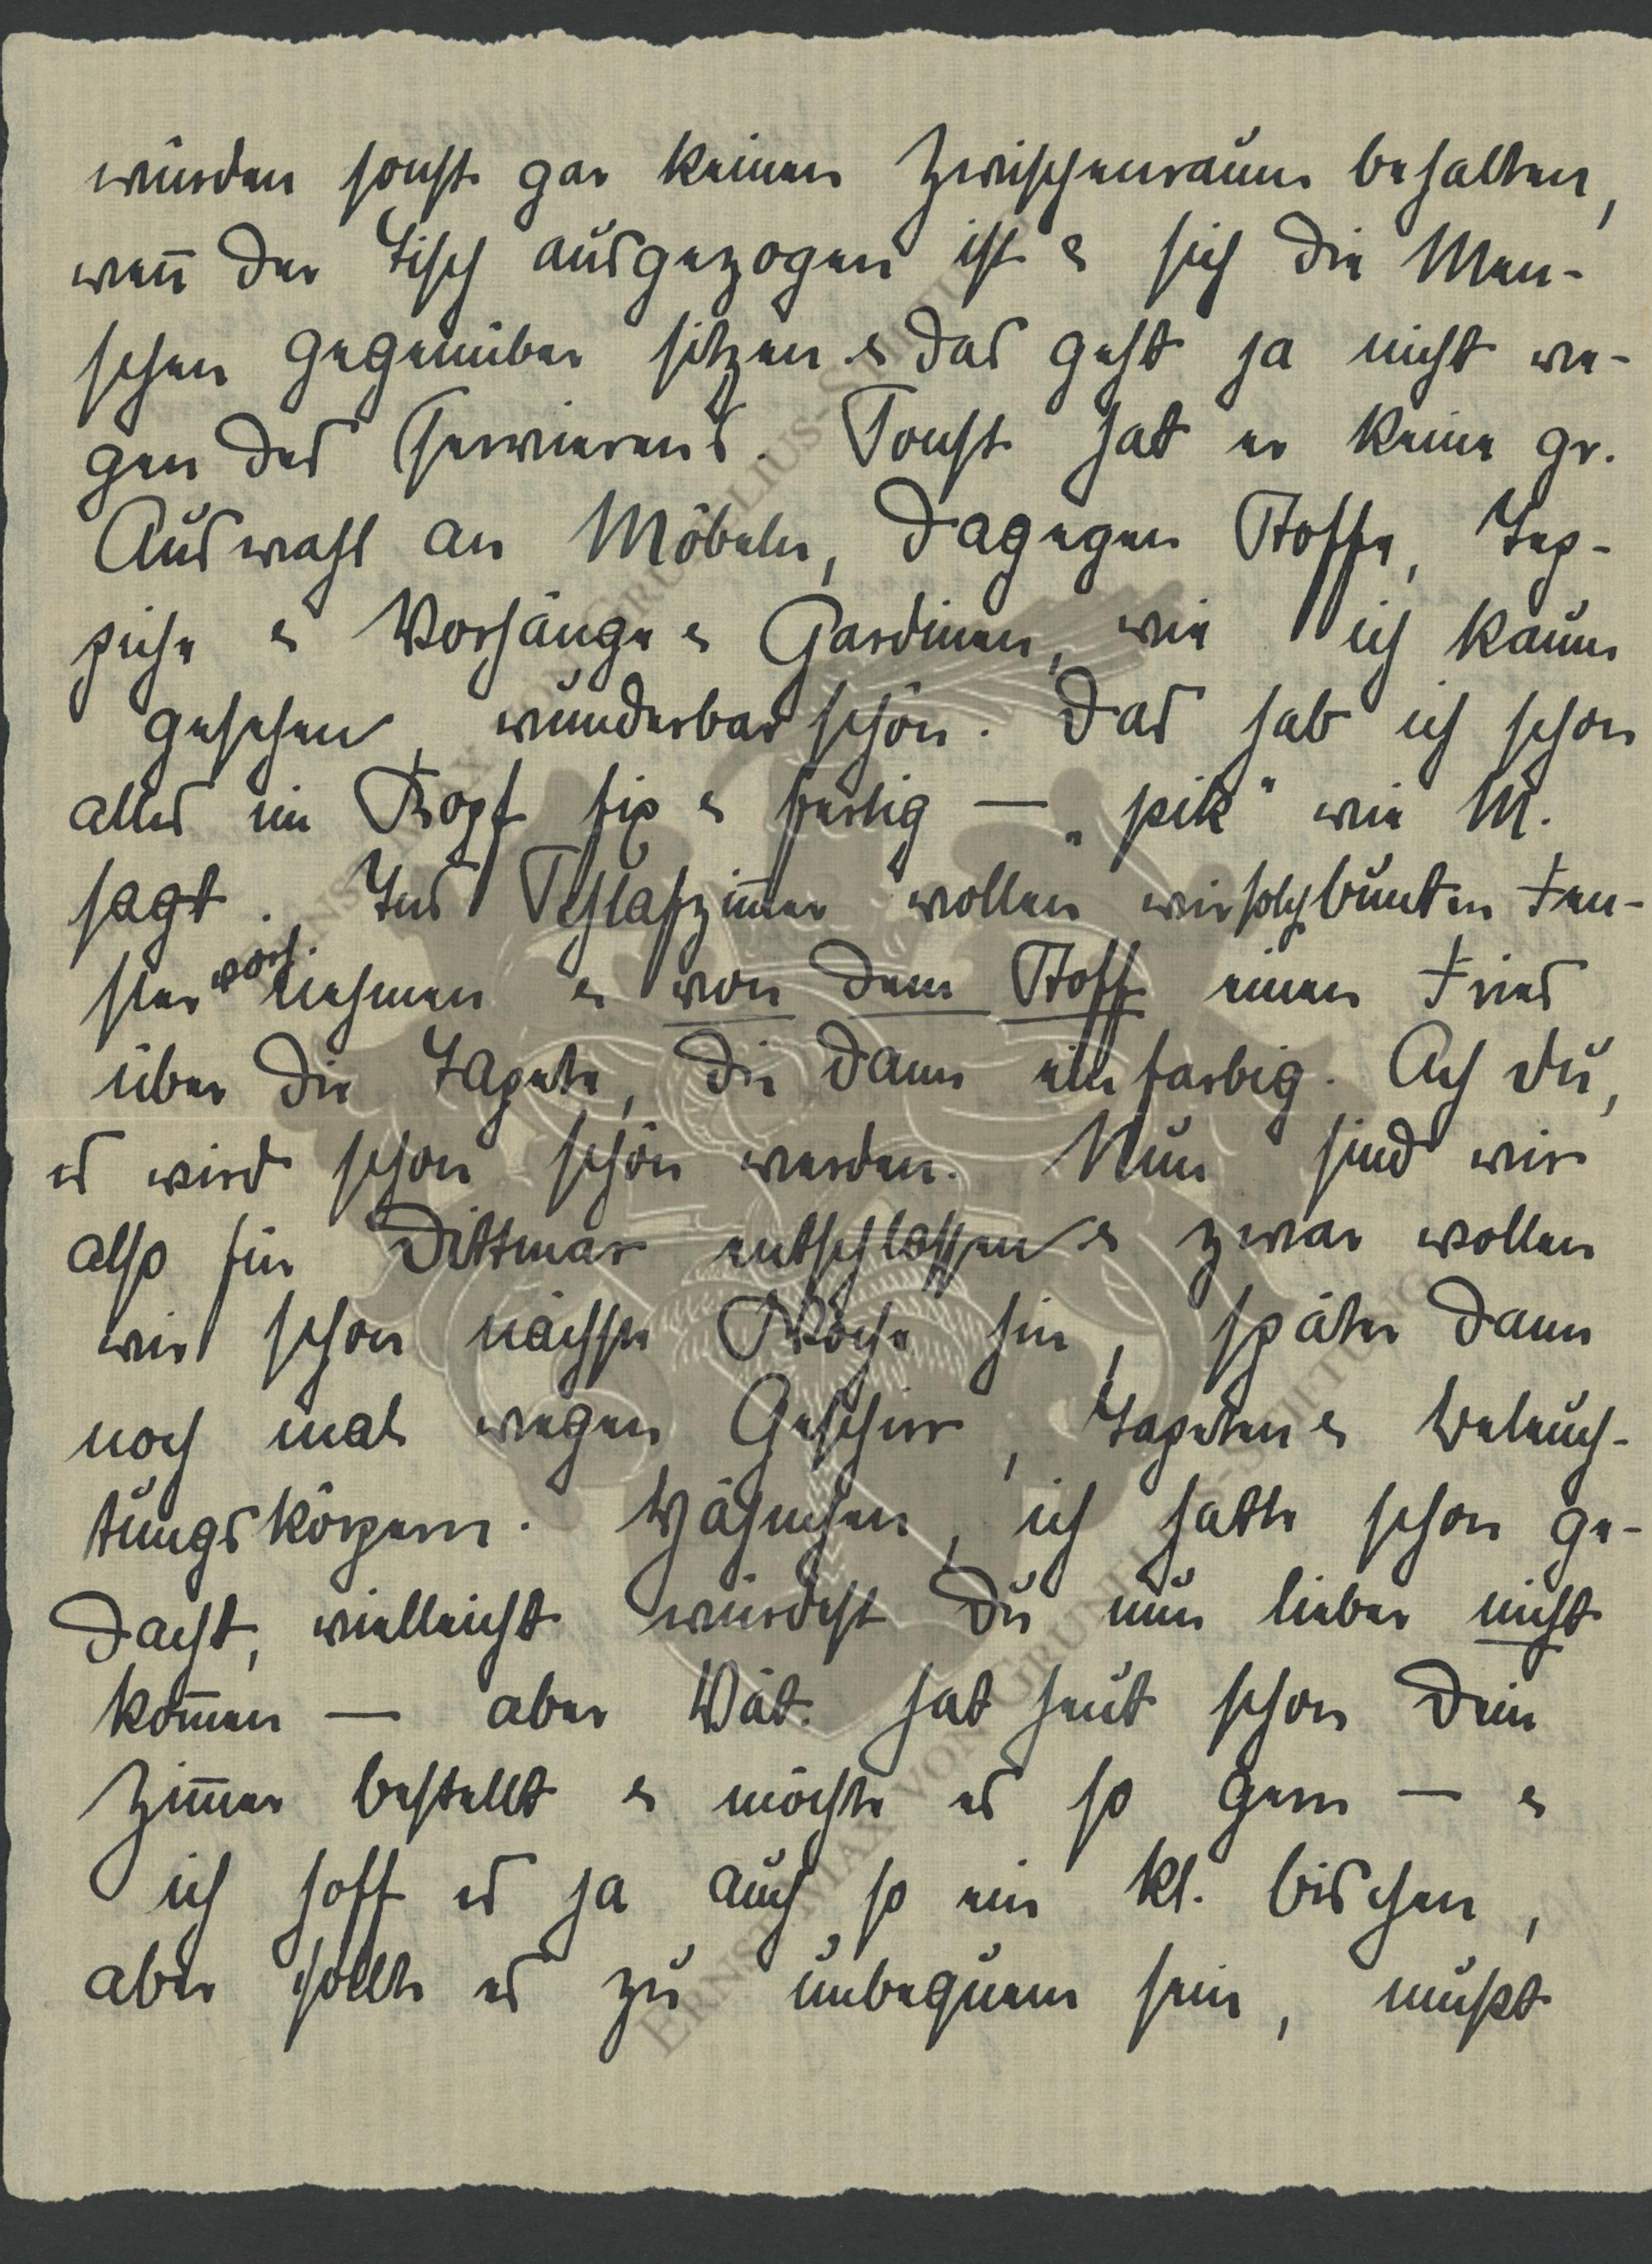 würden sonst gar keinen Zwischenraum behalten,
wen̄ der Tisch ausgezogen ist & sich die Men-
schen gegenüber sitzen & das geht ja nicht we-
gen des Servierens. Sonst hat er keine gr.
Auswahl an Möbeln, dagegen Stoffe, Tep-
piche & Vorhänge & Gardinen, wie ich kaum
gesehen, wunderbar schön. Das hab ich schon
alles im Kopf fix & fertig — „pik" wie M.
sagt. Ins Schlafzim̄er wollen wir solch bunten Fen-
ster vorh. nehmen & von dem Stoff einen Fries
über die Tapete, die dann einfarbig. Ach Du,
es wird schon schön werden. Nun sind wir
also für Dittmar entschlossen & zwar wollen
wir schon nächste Woche hin, später dann
noch mal wegen Geschirr, Tapeten & Beleuch-
tungskörpern. ich hatte schon ge-
dacht, vielleicht würdest Du nun lieber nicht
kom̄en — aber Vät. hat heut schon Dein
Zim̄er bestellt & möchte es so gern — &
ich hoff es ja auch, so ein kl. bischen,
aber sollte es zu unbequem sein, mußt
ERNST MAX VON GRUNELIUS-STIFTUNG
ERNST MAX VON GRUNELIUS-STIFTUNG